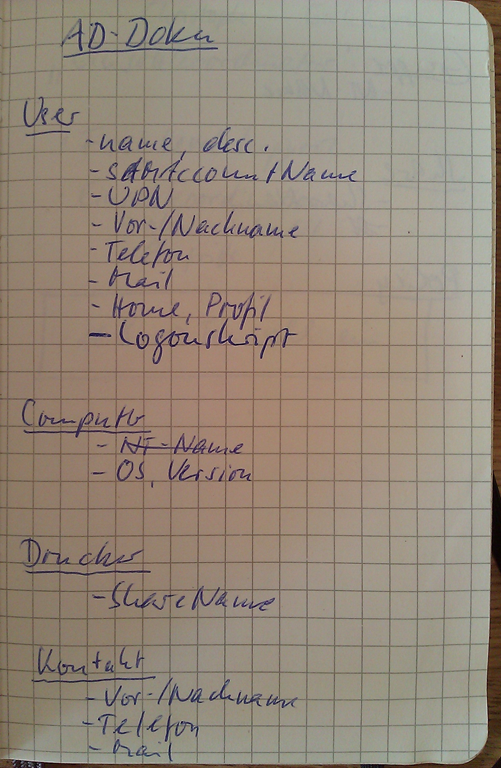 AD-Doku
User
- name, desc.
- sAMAccountName
- UPN
- Vor-/Nachname
- Telefon
- Mail
- Home, Profil
- Logonskript
Computer
- NT-Name
- OS, Version
Drucker
- ShareName
Kontakt
- Vor-/Nachname
- Telefon
- Mail